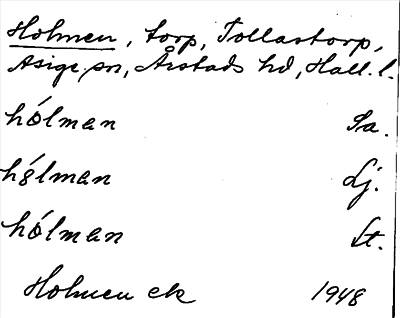 Holmen, torp, Tollastorp,
Asige sn, Årstads hd, Hall. l.
hólman Sa.
hólman Lj.
hólman St.
Holmen ek 1948